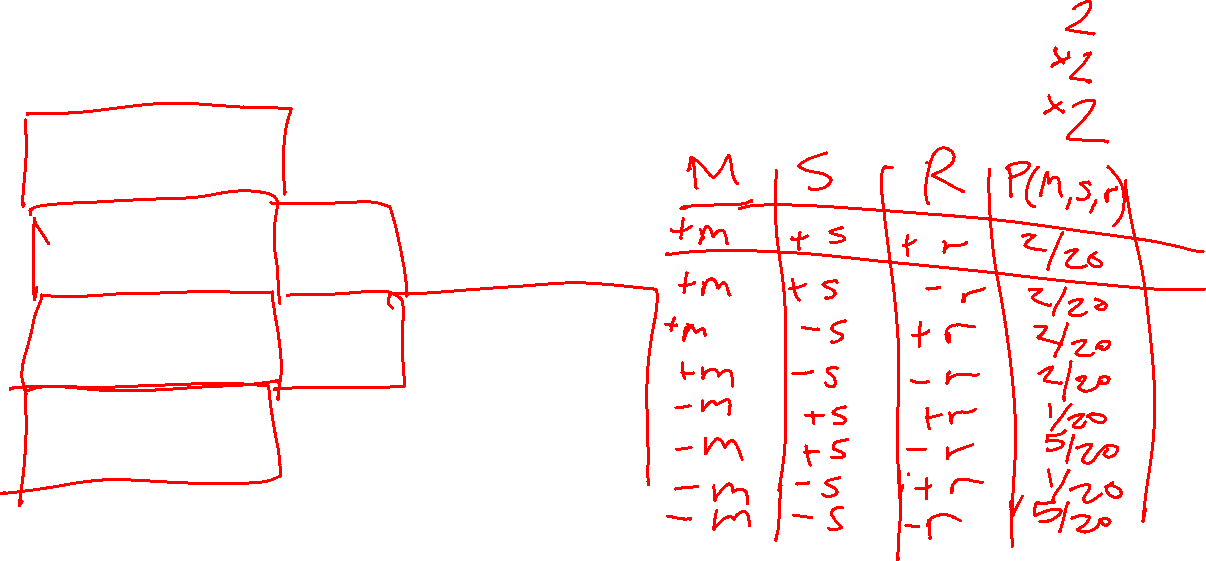 2
×2
×2
M S R P(m,s,r)
+m +s +r 2/20
+m +s -r 2/20
+m -s +r 2/20
+m -s -r 2/20
-m +s +r 1/20
-m +s -r 5/20
-m -s +r 1/20
-m -s -r 5/20